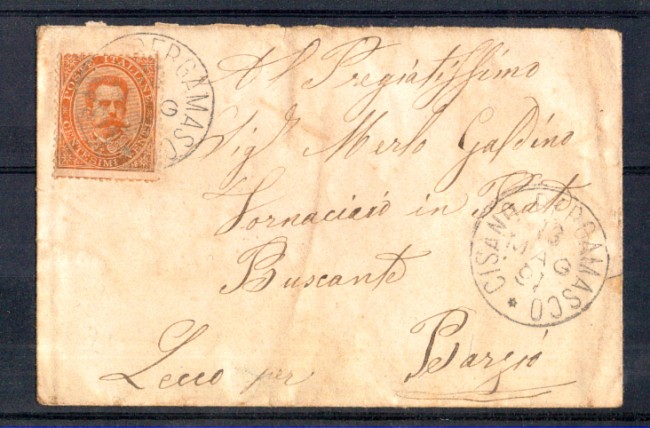 POSTE ITALIANE
CENTESIMI VENTI
BERGAMASCO
G
Al Pregiatissimo
Sig.r Merlo Galdino
Fornaciajo in Prato
Buscante
Lecco per Barzió
CISANO BERGAMASCO
13
MAG